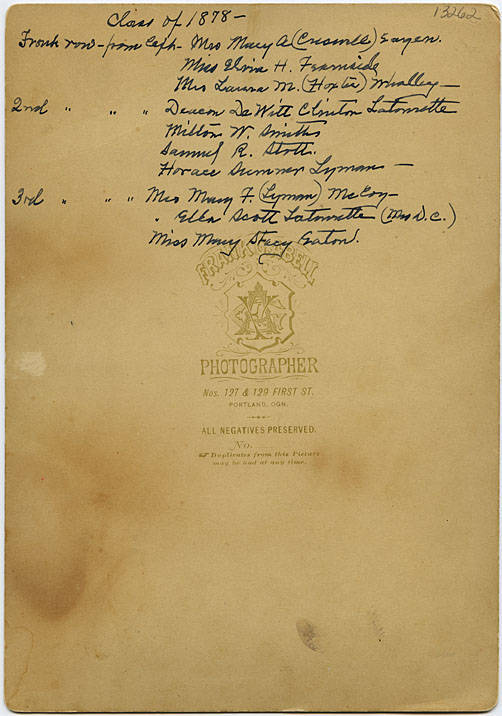 Class of 1878 -
13262
Front row - from left - Mrs Mary A (Creswell) Eagen.
Miss Elvia H. Fearnside
Mrs Laura M. (Hoxter) Whalley -
2nd " " " Deacon DeWitt Clinton Latourette
Milton W. Smith
Samuel R. Stott.
Horace Sumner Lyman -
3rd " " " Mrs Mary F. (Lyman) McCoy -
" Ella Scott Latourette (Mrs D.C.)
Miss Mary Stacy Eaton.
FRANK G. ABELL
PHOTOGRAPHER
Nos. 127 & 129 FIRST ST.
PORTLAND, OGN.
ALL NEGATIVES PRESERVED.
No.
Duplicates from this Picture
may be had at any time.